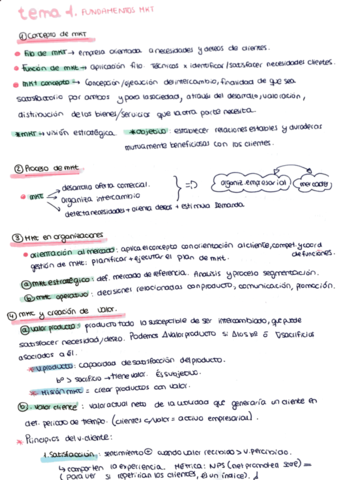 tema 1. FUNDAMENTOS MKT
① Concepto de MKT
• fia de MKT → empresa orientada a necesidades y deseos de clientes.
• función de MKT → aplicación fia técnicas x identificar/satisfacer necesidades clientes.
• MKT concepto → Concepción/ejecución del intercambio, finalidad de que sea
satisfactorio por ambos y para la sociedad, a través del desarrollo, valoración,
distribución de los bienes/servicios que la otra parte necesita.
*MKT → visión estratégica. *objetivo: establecer relaciones estables y duraderas
mutuamente beneficiosas con los clientes.
② Proceso de MKT.
• MKT
desarrolla oferta comercial.
organiza intercambio
detecta necesidades + orienta deseos + estimula demanda
=D
organiz empresarial
mercado
③ MKT en organizaciones
• orientación al mercado: aplica el concepto con orientación al cliente, compet y coord
de funciones.
gestión de MKT: planificar + ejecutar el plan de MKT.
ⓐ MKT estratégico: def. mercado de referencia. Análisis y proceso segmentación.
ⓑ MKT operativo: decisiones relacionadas con producto, comunicación, promoción.
④ MKT y creación de valor.
ⓐ valor producto: producto todo lo susceptible de ser intercambiado, que puede
satisfacer necesidad/deseo. Podemos Δvalor producto si Δ los bº ó ∇ sacrificios
asociados a él.
• v.producto: capacidad de satisfacción del producto.
bº > sacrificio → tiene valor. Es subjetivo.
• Misión MKT = crear productos con valor.
ⓑ valor cliente: valor actual neto de la utilidad que generaría un cliente en
det. periodo de tiempo. (clientes c/valor = activo empresarial).
* Principios del v.cliente:
1. Satisfacción: sentimiento ⊕ cuando valor recibido > v.percibido.
↳ comparten la experiencia. Métrica: NPS (net promoter score) =
(para ver si repetirían los clientes, es un índice).